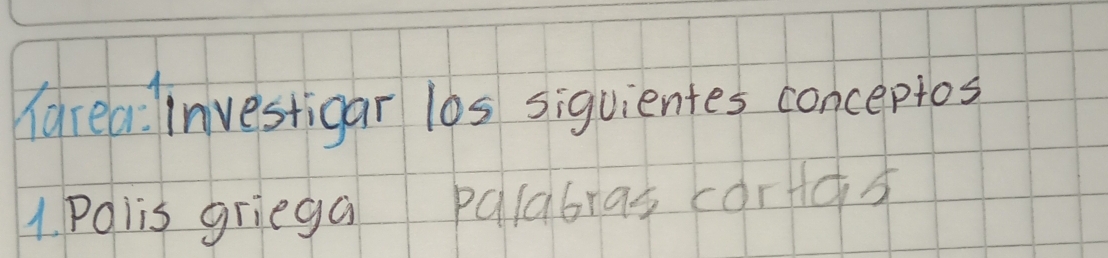 Tarea: 1 investigar los siguientes conceptos
1. Polis griega palabras cortas